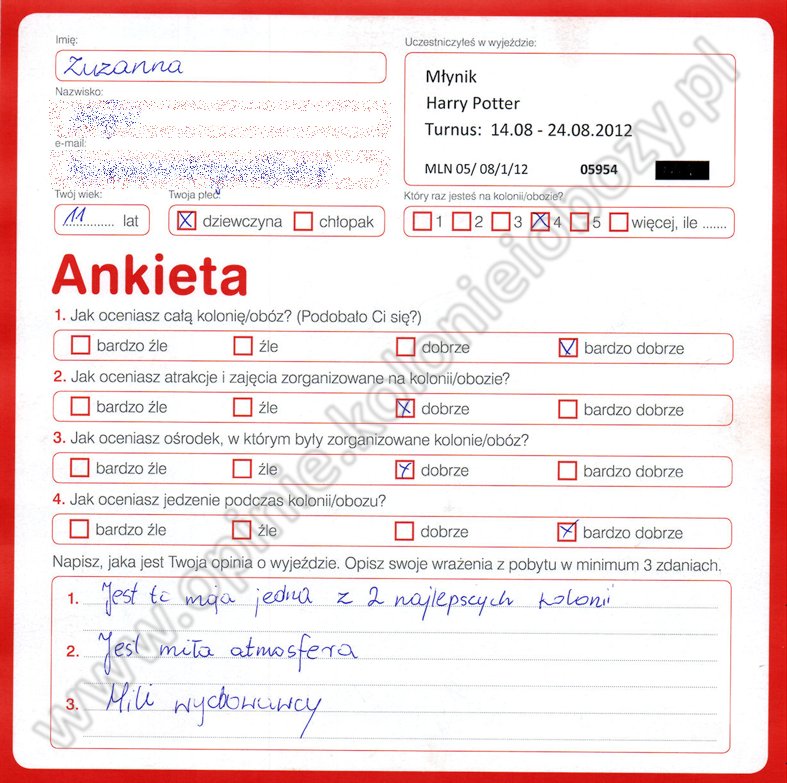 Imię:
Zuzanna
Nazwisko:
e-mail:
Twój wiek:
11 lat
Twoja płeć:
dziewczyna chłopak
Uczestniczyłeś w wyjeździe:
Młynik
Harry Potter
Turnus: 14.08 - 24.08.2012
MLN 05/ 08/1/12 05954
Który raz jesteś na kolonii/obozie?
1 2 3 4 5 więcej, ile .......
Ankieta
1. Jak oceniasz całą kolonię/obóz? (Podobało Ci się?)
bardzo źle źle dobrze bardzo dobrze
2. Jak oceniasz atrakcje i zajęcia zorganizowane na kolonii/obozie?
bardzo źle źle dobrze bardzo dobrze
3. Jak oceniasz ośrodek, w którym były zorganizowane kolonie/obóz?
bardzo źle źle dobrze bardzo dobrze
4. Jak oceniasz jedzenie podczas kolonii/obozu?
bardzo źle źle dobrze bardzo dobrze
Napisz, jaka jest Twoja opinia o wyjeździe. Opisz swoje wrażenia z pobytu w minimum 3 zdaniach.
1. Jest to moja jedna z 2 najlepszych kolonii
2. Jest miła atmosfera
3. Mili wychowawcy
www.opinie.kolonieiobozy.pl